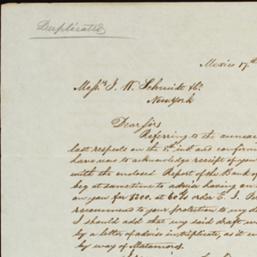 Duplicate
Mexico 17th
Messrs J. W. Schmidt &Co.
New York
Dear Sirs
Referring to the annexed
last respects on the 5th inst and confirm
have now to acknowledge receipt of your
with the enclosed Report of the Bank of
beg at same time to advice having
on you for $200. at 60 d/ order E. J.
recommend to your protection to my
I should add that my said draft
by a letter of advice in triplicate, as it
by way of Matamoros.